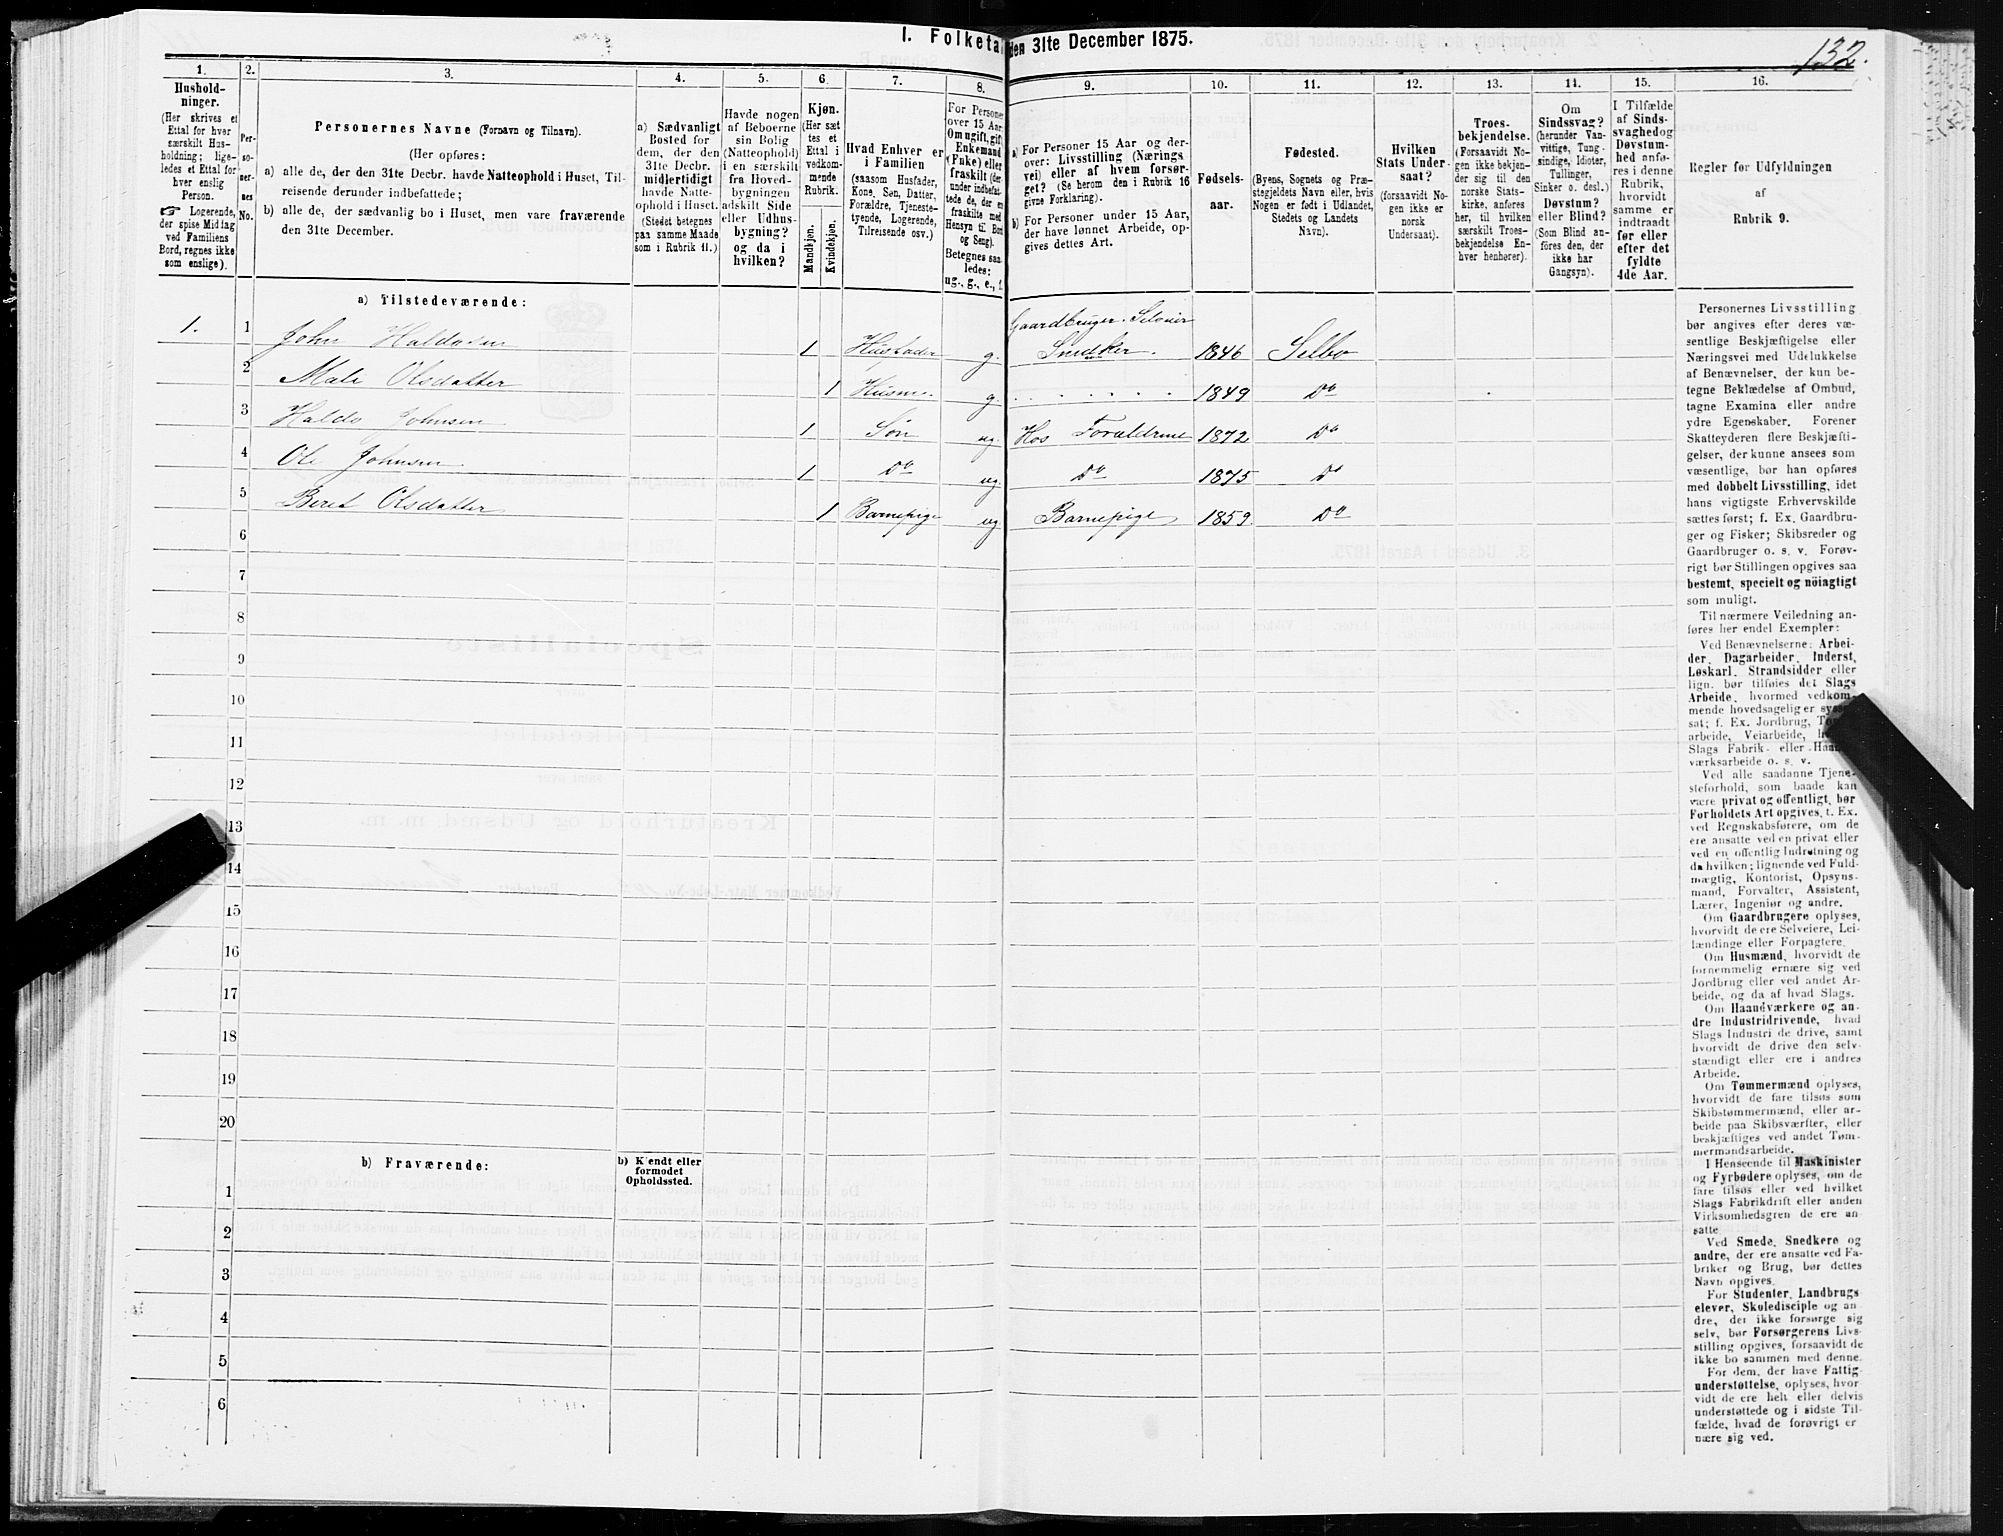 I. Folketal den 31te December 1875.
132.
1. 2. 3. 4. 5. 6. 7. 8. 9. 10. 11. 12. 13. 14. 15. 16.
Hushold-
ninger.
(Her skrives et
Ettal for hver
særskilt Hus-
holdning; lige-
ledes et Ettal for
hver enslig
Person.
☞ Logerende,
der spise Middag
ved Familiens
Bord, regnes ikke
som enslige).
Per-
so-
ner-
nes
No.
Personernes Navne (Fornavn og Tilnavn).
(Her opføres:
a) alle de, der den 31te Decbr. havde Natteophold i Huset, Til-
reisende derunder indbefattede;
b) alle de, der sædvanlig bo i Huset, men vare fraværende
den 31te December.
a) Sædvanligt
Bosted for
dem, der den
31te Decbr.
midlertidigt
havde Natte-
ophold i Huset.
(Stedet betegnes
paa samme Maade
som i Rubrik 11.)
Havde nogen
af Beboerne
sin Bolig
(Natteophold)
i en særskilt
fra Hoved-
bygningen
adskilt Side
eller Udhus-
bygning?
og da i
hvilken?
Kjøn.
(Her sæt
tes et
Ettal i
vedkom-
mende
Rubrik.
Mandkjøn.
Kvindekjøn.
Hvad Enhver er
i Familien
(saasom Husfader,
Kone, Søn, Datter,
Forældre, Tjeneste-
tyende, Logerende,
Tilreisende osv.)
For Personer
over 15 Aar:
Om ugift, gift,
Enkemand
(Enke) eller
fraskilt (der-
under indbefat-
tede de, der ere
fraskilte med
Hensyn til Bord
og Seng).
Betegnes saa-
ledes:
ug., g., e., f.
a) For Personer 15 Aar og der-
over: Livsstilling (Nærings
vei) eller af hvem forsør-
get? (Se herom den i Rubrik 16
givne Forklaring).
b) For Personer under 15 Aar,
der have lønnet Arbeide, op-
gives dettes Art.
Fødsels-
aar.
Fødested.
(Byens, Sognets og Præ-
stegjeldets Navn eller, hvis
Nogen er født i Udlandet,
Stedets og Landets
Navn).
Hvilken
Stats Under-
saat?
(forsaavidt No-
gen ikke er
norsk
Undersaat).
Troes-
bekjendelse.
(Forsaavidt No-
gen ikke bekjen-
der sig til den
norske Stats-
kirke, anføres
her, til hvilken
særskilt Troes-
bekjendelse En-
hver henhører).
Om
Sindssvag?
(herunder Van-
vittige, Tung-
sindige, Idioter,
Tullinger,
Sinker o. desl.)
Døvstum?
eller Blind?
(Som Blind an-
føres den, der
ikke har
Gangsyn).
I Tilfælde
af Sinds-
svaghed og
Døvstum-
hed anfø-
res i denne
Rubrik,
hvorvidt
samme er
indtraadt
før eller
efter det
fyldte
4de Aar.
Regler for Udfyldningen
af
Rubrik 9.
a) Tilstedeværende:
1. 1 John Haldosen 1 Husfader g. Gaardbruger. Selveier
Snedker. 1846 Selbo
2 Mali Olsdatter 1 Husm. g. 1849 Do
3 Haldo Johnsen 1 Søn ug. Hos Forældrene 1872 Do
4 Ole Johnsen 1 Do ug Do 1875 Do
5 Beret Olsdatter 1 Barnepige ug Barnepige 1859. Do
6
7
8
9
10
11
12
13
14
15
16
17
18
19
20
b) Fraværende:
b) Kjendt eller
formodet
Opholdssted.
1
2
3
4
5
6
Personernes Livsstilling
bør angives efter deres væ-
sentlige Beskjæftigelse eller
Næringsvei med Udelukkelse
af Benævnelser, der kun be-
tegne Beklædelse af Ombud,
tagne Examina eller andre
ydre Egenskaber. Forener
Skatteyderen flere Beskjæfti-
gelser, der kunne ansees som
væsentlige, bør han opføres
med dobbelt Livsstilling, idet
hans vigtigste Erhvervskilde
sættes først; f. Ex. Gaardbru-
ger og Fisker; Skibsreder og
Gaardbruger o. s. v. Forøv-
rigt bør Stillingen opgives saa
bestemt, specielt og nöiagtigt
som muligt.
Til nærmere Veiledning an-
føres her endel Exempler:
Ved Benævnelserne: Arbei-
der, Dagarbeider, Inderst,
Løskarl, Strandsidder eller
lign. bør tilføies det Slags
Arbeide, hvormed vedkom-
mende hovedsagelig er syssel-
sat; f. Ex. Jordbrug,
arbeide, Veiarbeide,
Slags Fabrik- eller
værksarbeide o. s. v.
Ved alle saadanne Tjene-
steforhold, som baade kan
være privat og offentligt, bør
Forholdets Art opgives, t. Ex.
ved Regnskabsførere, om de
ere ansatte ved en privat eller
ved en offentlig Indretning og
da hvilken; lignende ved Fuld-
mægtig, Kontorist, Opsyns-
mand, Forvalter, Assistent,
Lærer, Ingeniør og andre.
Om Gaardbrugere oplyses,
hvorvidt de ere Selveiere, Lei-
lændinge eller Forpagtere.
Om Husmænd, hvorvidt de
fornemmelig ernære sig ved
Jordbrug eller ved andet Ar-
beide, og da af hvad Slags.
Om Haandværkere og an-
dre Industridrivende, hvad
Slags Industri de drive, samt
hvorvidt de drive den selv-
stændigt eller ere i andres
Arbeide.
Om Tømmermænd oplyses,
hvorvidt de fare tilsøs som
Skibstømmermænd, eller ar-
beide paa Skibsværfter, eller
beskjæftiges ved andet Tøm-
mermandsarbeide.
I Henseende til Maskinister
og Fyrbødere oplyses, om de
fare tilsøs eller ved hvilket
Slags Fabrikdrift eller anden
Virksomhedsgren de ere an-
satte.
Ved Smede, Snedkere og
andre, der ere ansatte ved Fa-
briker og Brug, bør dettes
Navn opgives.
For Studenter, Landbrugs
elever, Skoledisciple og an-
dre, der ikke forsørge sig
selv, bør Forsørgerens Livs-
stilling opgives, forsaavidt de
ikke bo sammen med denne.
For dem, der have Fattig-
understøttelse, oplyses, hvor
vidt de ere helt eller delvis
understøttede og i sidste Til-
fælde, hvad de forøvrigt er
nære sig ved.